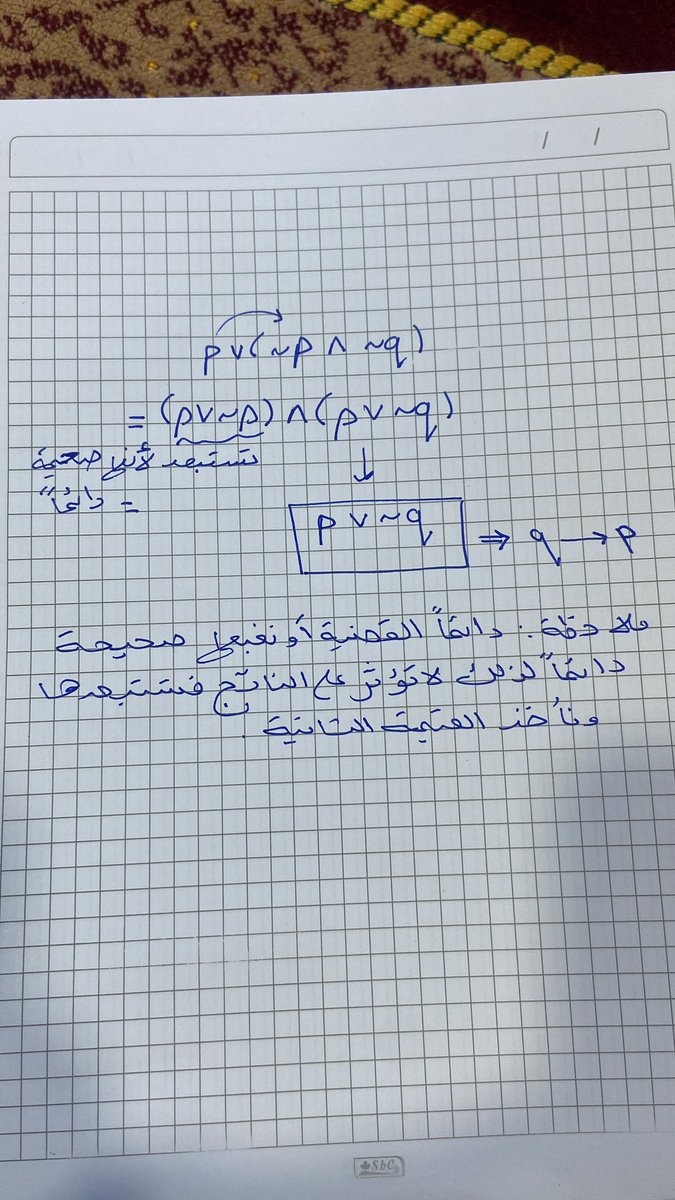 / /
p ∨ (~p ∧ ~q)
= (p ∨ ~p) ∧ (p ∨ ~q)
تستبعد لأنها صحيحة
= دائماً
↓
p ∨ ~q ⇒ q → p
ملاحظة: دائماً القضية أو نفيها صحيحة
دائماً لذلك لا تؤثر على الناتج فنستبعدها
ونأخذ القيمة الثانية.
SbC